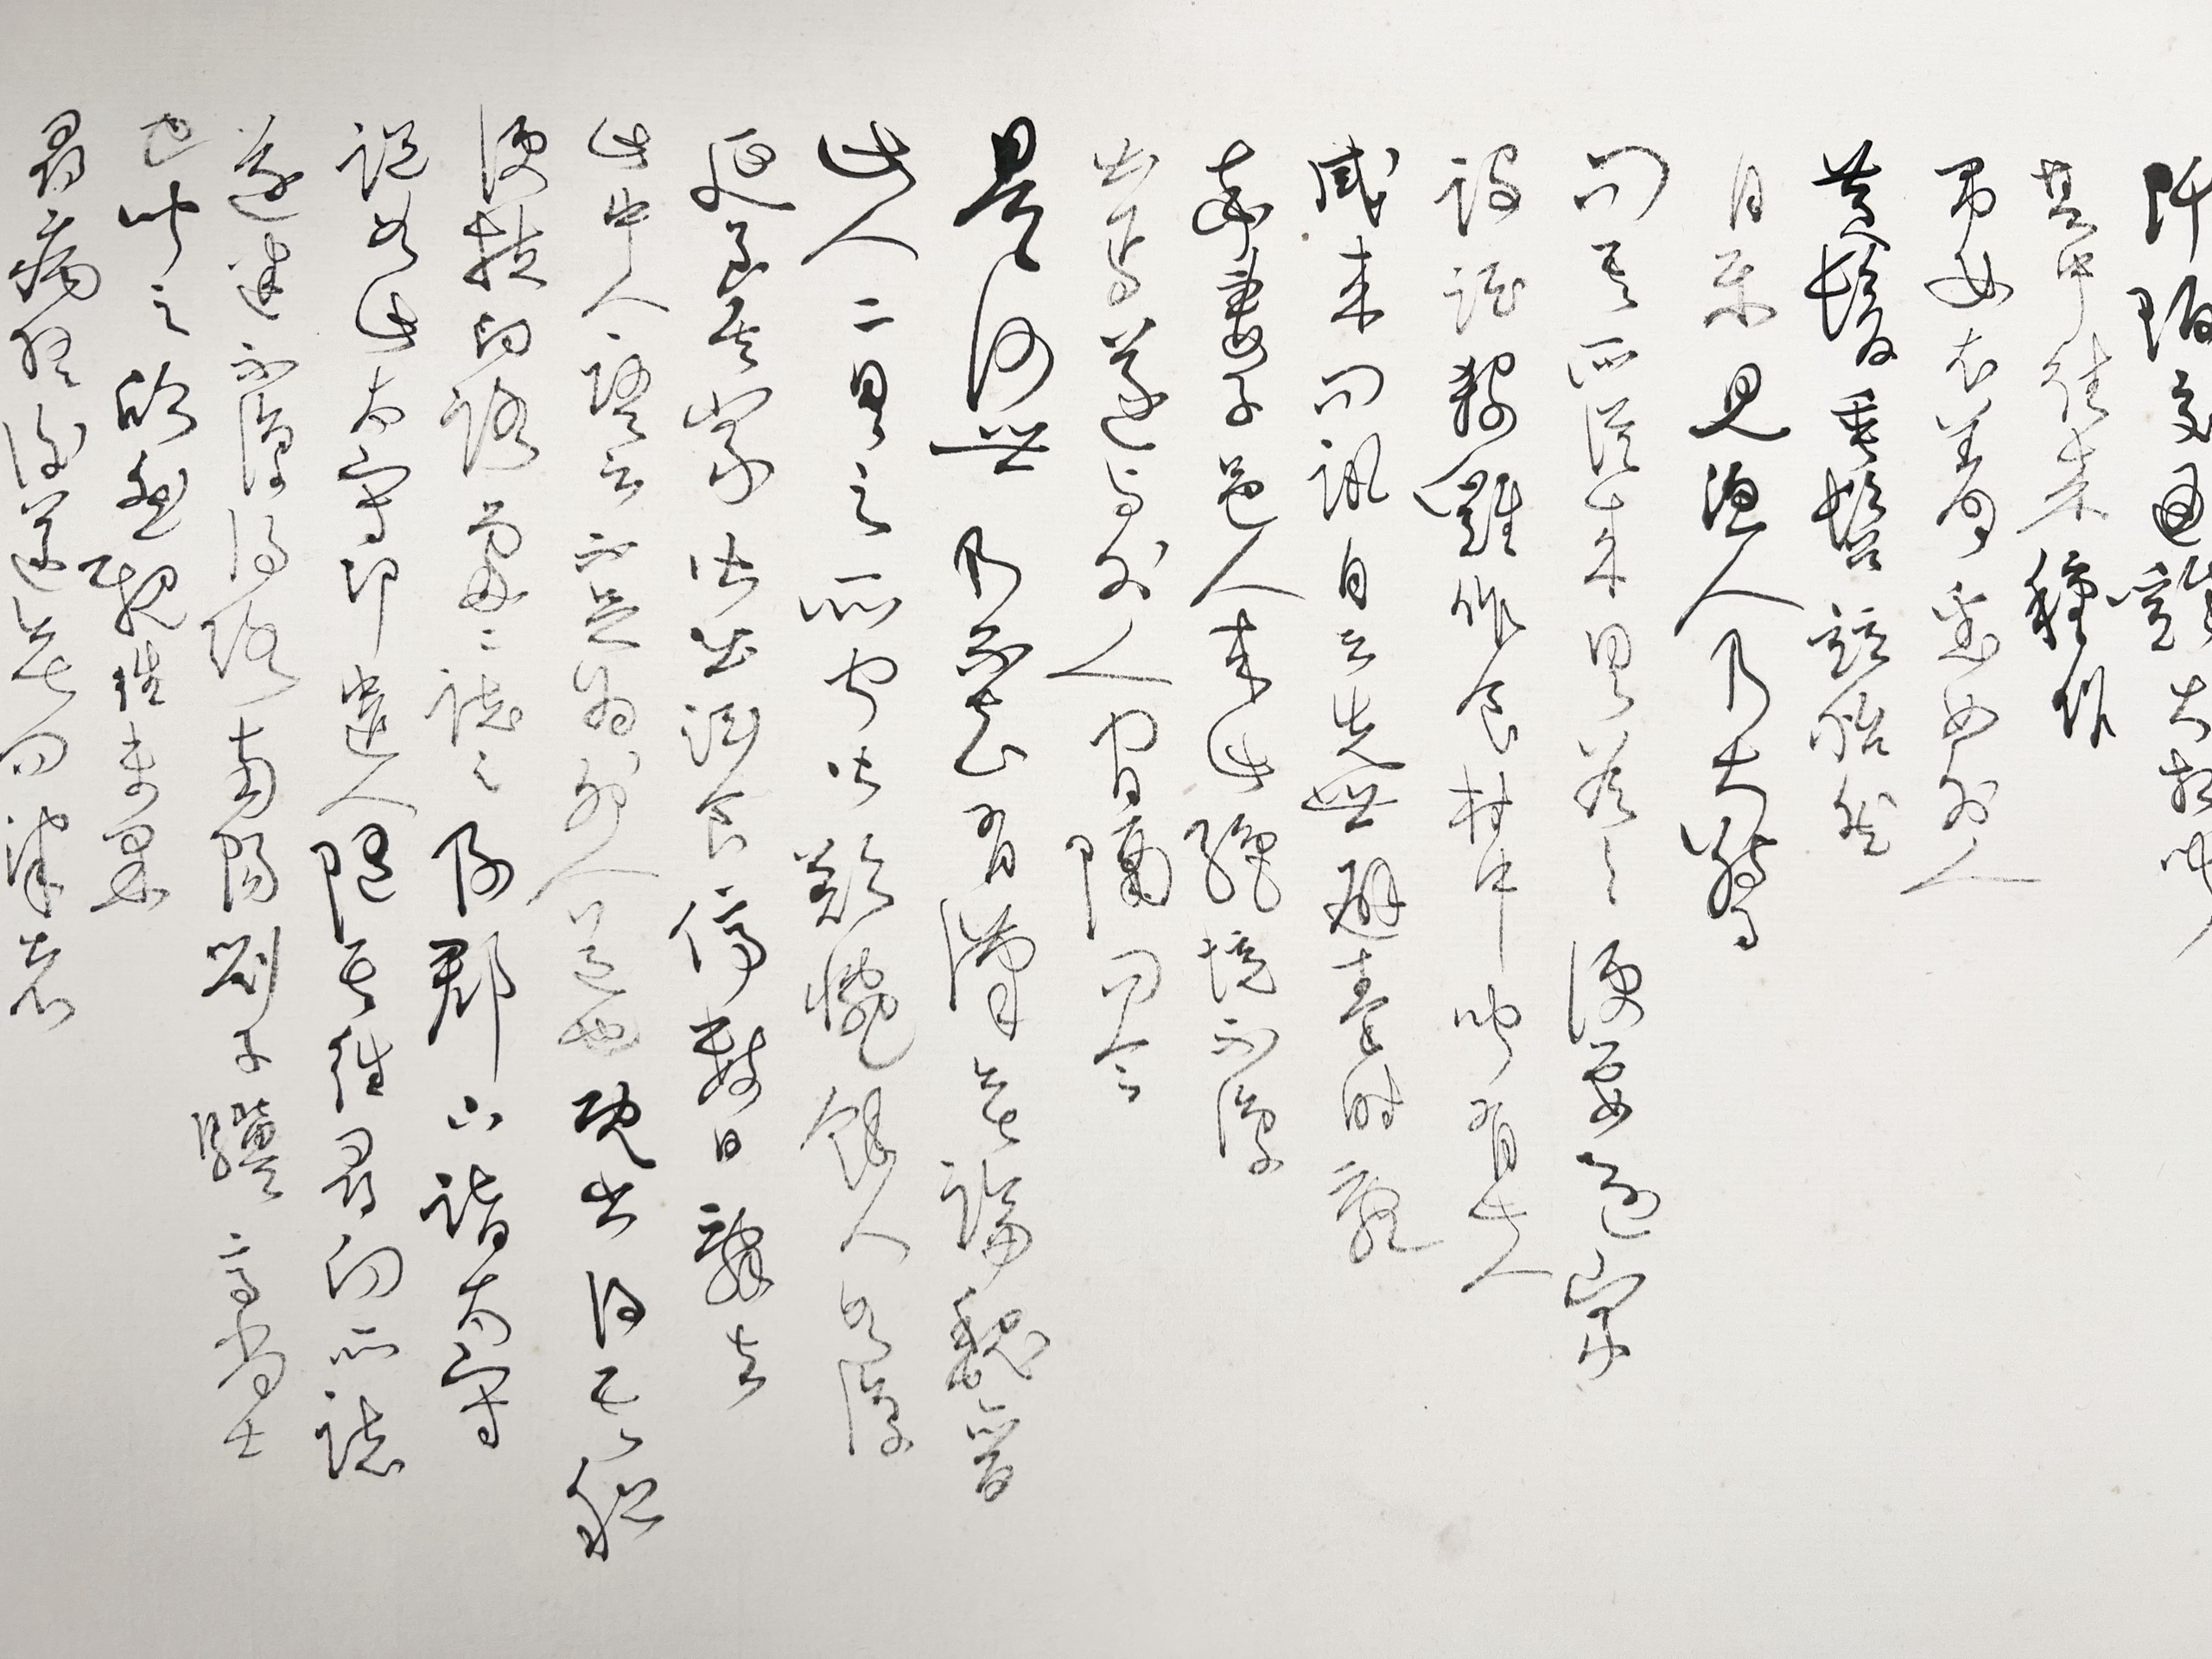 阡陌交通雞犬相聞
其中往來種作
男女衣著悉如外人
黃髮垂髫並怡然
自樂見漁人乃大驚
問其所從來具答之便要還家
設酒殺雞作食村中聞有此人
咸來問訊自云先世避秦時亂
率妻子邑人來此絕境不復
出焉遂與外人間隔問今
是何世乃不知有漢無論魏晉
此人一一具言所聞皆歎惋餘人各復
延至其家皆出酒食停數日辭去
此中人語云不足為外人道也既出得其船
便扶向路處處誌之及郡下詣太守
說如此太守即遣人隨其往尋向所誌
遂迷不復得路南陽劉子驥高尚士
也聞之欣然規往未果
尋病終後遂無問津者